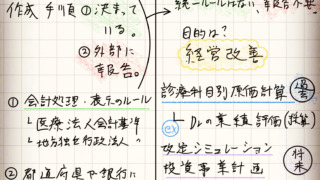 作成手順 ①決まって
いる。
②外部に
報告。
① 会計処理・表示のルール
└ 医療法人会計基準
└ 地方独立行政法人 〃
② 都道府県や銀行に
統一ルールはない、報告不要。
目的は?
経営改善
診療科目別原価計算
過去
ex
└ Drの業績評価(採算)
改定シミュレーション
投資事業計画
将来